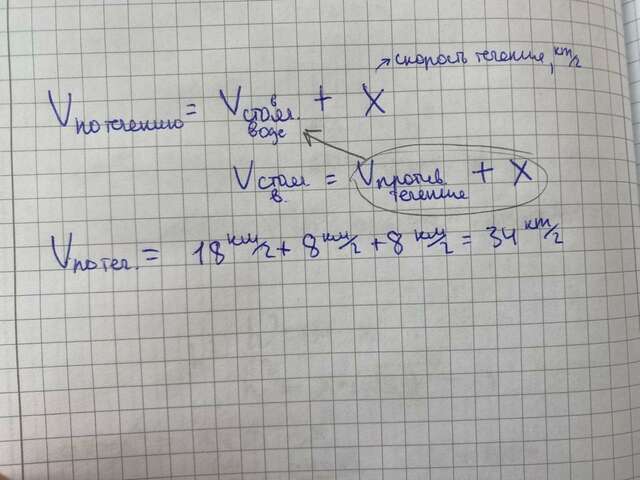 → скорость течения, км/г
Vпо течению = Vв стояч. воде + X
Vстояч в. = Vпротив течение + X
Vпотеч. = 18 км/г + 8 км/г + 8 км/г = 34 км/г